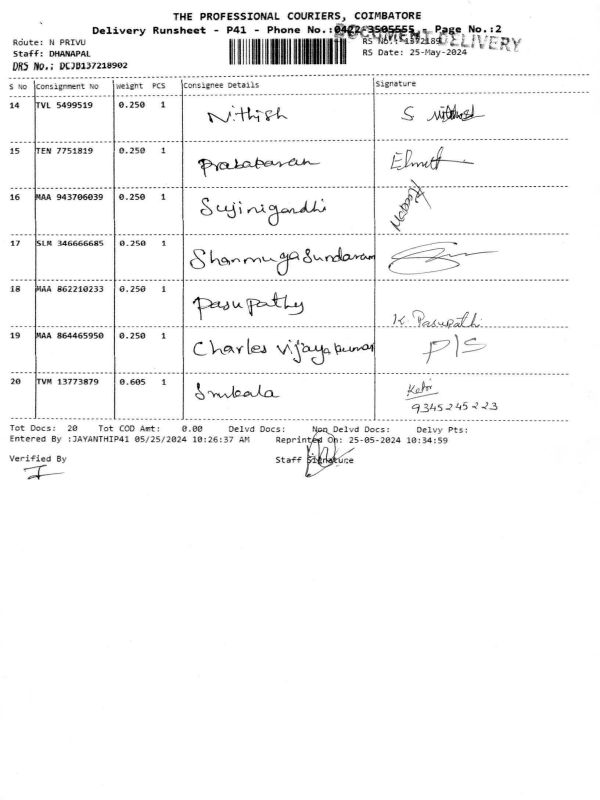 THE PROFESSIONAL COURIERS, COIMBATORE
Delivery Runsheet - P41 - Phone No.:0422-3505555 - Page No.:2
DOCUMENT DELIVERY
Route: N PRIVU RS No.: 1372189
Staff: DHANAPAL RS Date: 25-May-2024
DRS No.: DCJB137218902
S No Consignment No Weight PCS Consignee Details Signature
14 TVL 5499519 0.250 1 Nithish S
15 TEN 7751819 0.250 1 Prabakaran
16 MAA 943706039 0.250 1 Sujinigandhi
17 SLM 346666685 0.250 1 Shanmuga Sundaram
18 MAA 862210233 0.250 1 Pasupathy K. Pasupathi
19 MAA 864465950 0.250 1 Charles Vijaya kumar P/S
20 TVM 13773879 0.605 1
9345245223
Tot Docs: 20 Tot COD Amt: 0.00 Delvd Docs: Non Delvd Docs: Delvy Pts:
Entered By :JAYANTHIP41 05/25/2024 10:26:37 AM Reprinted On: 25-05-2024 10:34:59
Verified By Staff Signature